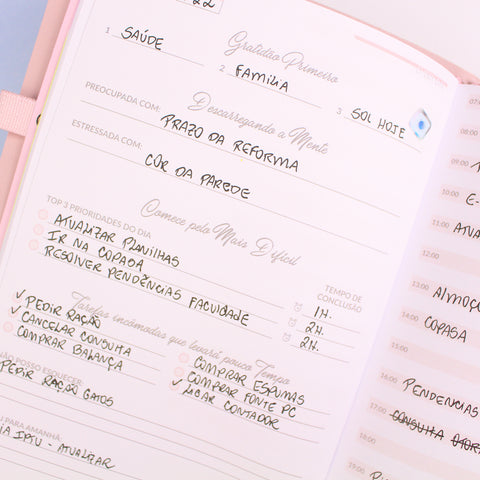 22
Gratidão Primeiro
1 SAÚDE
2 FAMILIA
3 SOL HOJE
Descarregando a Mente
PREOCUPADA COM:
PRAZO DA REFORMA
ESTRESSADA COM:
CÔR DA PAREDE
Comece pelo Mais Difícil
TOP 3 PRIORIDADES DO DIA
TEMPO DE CONCLUSÃO
ATUALIZAR PLANILHAS 1H.
IR NA COPASA 2H.
RESOLVER PENDÊNCIAS FACULDADE 2H.
Tarefas incômodas que levará pouco Tempo
✓ PEDIR RAÇÃO
✓ CANCELAR CONSULTA
COMPRAR BALANÇA
COMPRAR ESPUMAS
COMPRAR FONTE PC
✓ LIGAR CONTADOR
NÃO POSSO ESQUECER
PEDIR RAÇÃO GATOS
PARA AMANHÃ
IPTU - ATUALIZAR
07:
08:00
09:00
10:00 E-
11:00 ATUA
12:00
13:00 ALMOÇO
14:00 COPASA
15:00
16:00 PENDENCIAS
17:00 CONSULTA
18:00
19:00